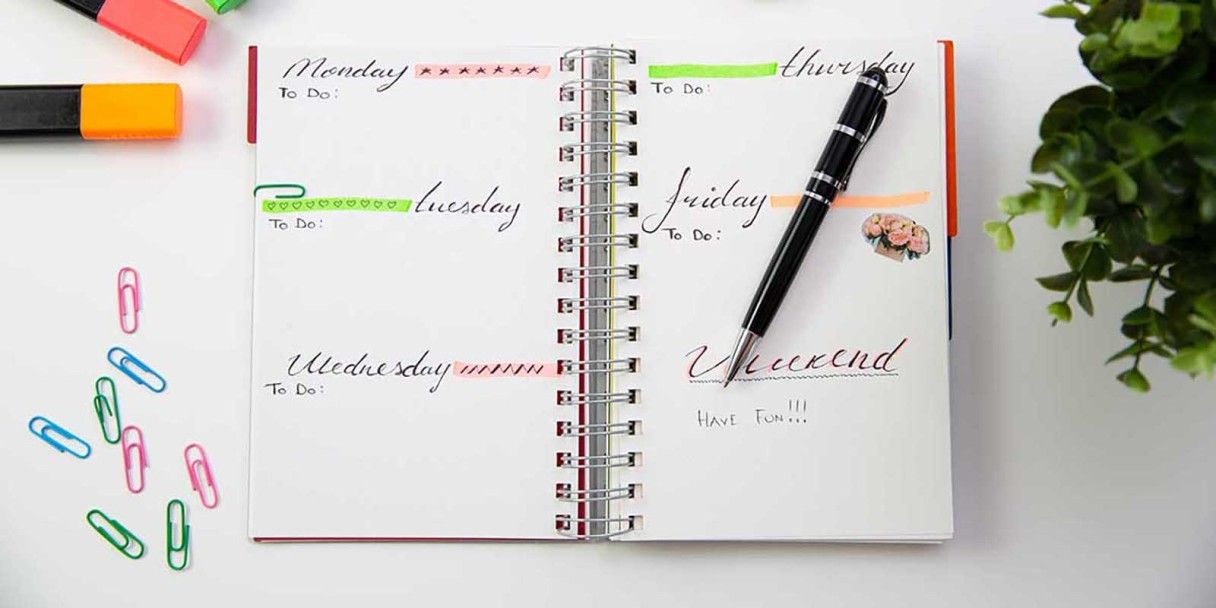 Monday
To Do:
Tuesday
To Do:
Wednesday
To Do:
Thursday
To Do:
Friday
To Do:
Weekend
Have Fun!!!